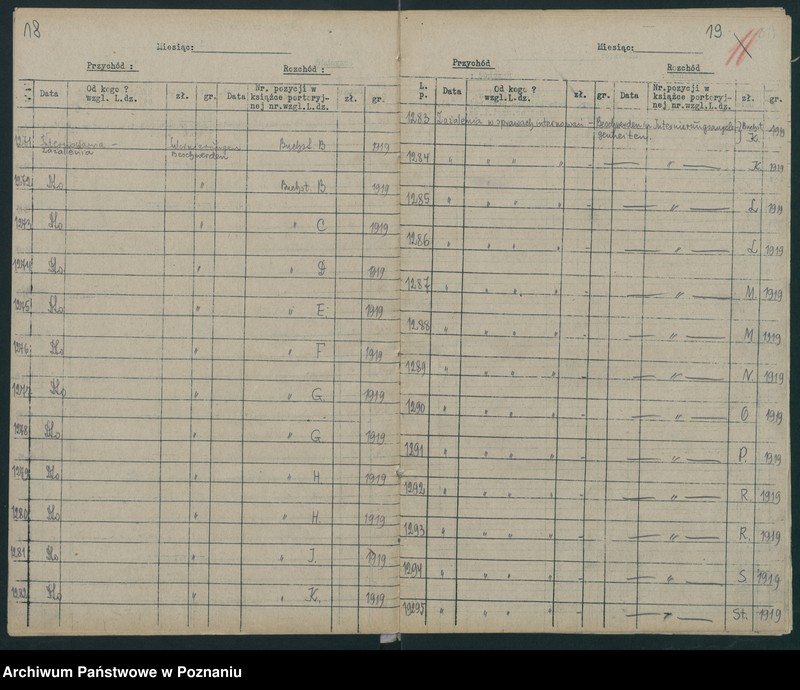 18
Miesiąc:
Przychód :
Rozchód :
Data
Od kogo ?
wzgl. L.dz.
zł.
gr.
Data
Nr. pozycji w
książce portoryj-
nej nr.wzgl.L.dz.
zł.
gr.
1271 Internowania - Buchst. B 1919
zażalenia Beschwerden
1272 dto " Buchst. B 1919
1273 dto " " C 1919
1274 dto " " D 1919
1275 dto " " E. 1919
1276 dto " " F 1919
1277 dto " " G. 1919
1278 dto " " G. 1919
1279 dto " " H. 1919
1280 dto " " H. 1919
1281 dto " " J. 1919
1282 dto " " K. 1919
19
11
Miesiąc:
Przychód
Rozchód
L.
p.
Data
Od kogo ?
wzgl. L.dz.
zł.
gr.
Data
Nr.pozycji w
książce portoryj-
nej nr.wzgl.L.dz.
zł.
gr.
1283 Zażalenia w sprawach internowań - Beschwerden in Internierungsangele- Buchst. 1919
genheiten. K.
1284 " " " " - — " — K 1919
1285 " " " " - — " — L 1919
1286 " " " " - — " — L 1919
1287 " " " " - — " — M 1919
1288 " " " " - — " — M 1919
1289 " " " " - — " — N. 1919
1290 " " " " - — " — O 1919
1291 " " " " - — " — P. 1919
1292 " " " " - — " — R. 1919
1293 " " " " - — " — R. 1919
1294 " " " " - — " — S 1919
19295 " " " " - — " — St. 1919
Archiwum Państwowe w Poznaniu